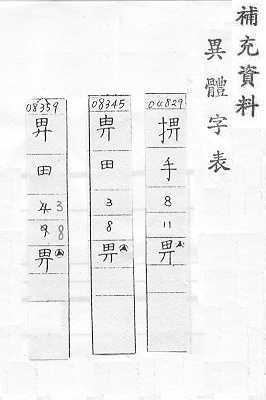 補充資料
異體字表
04829
手
8
11
畀
08345
田
3
8
畀
08359
田
4 3
9 8
畀